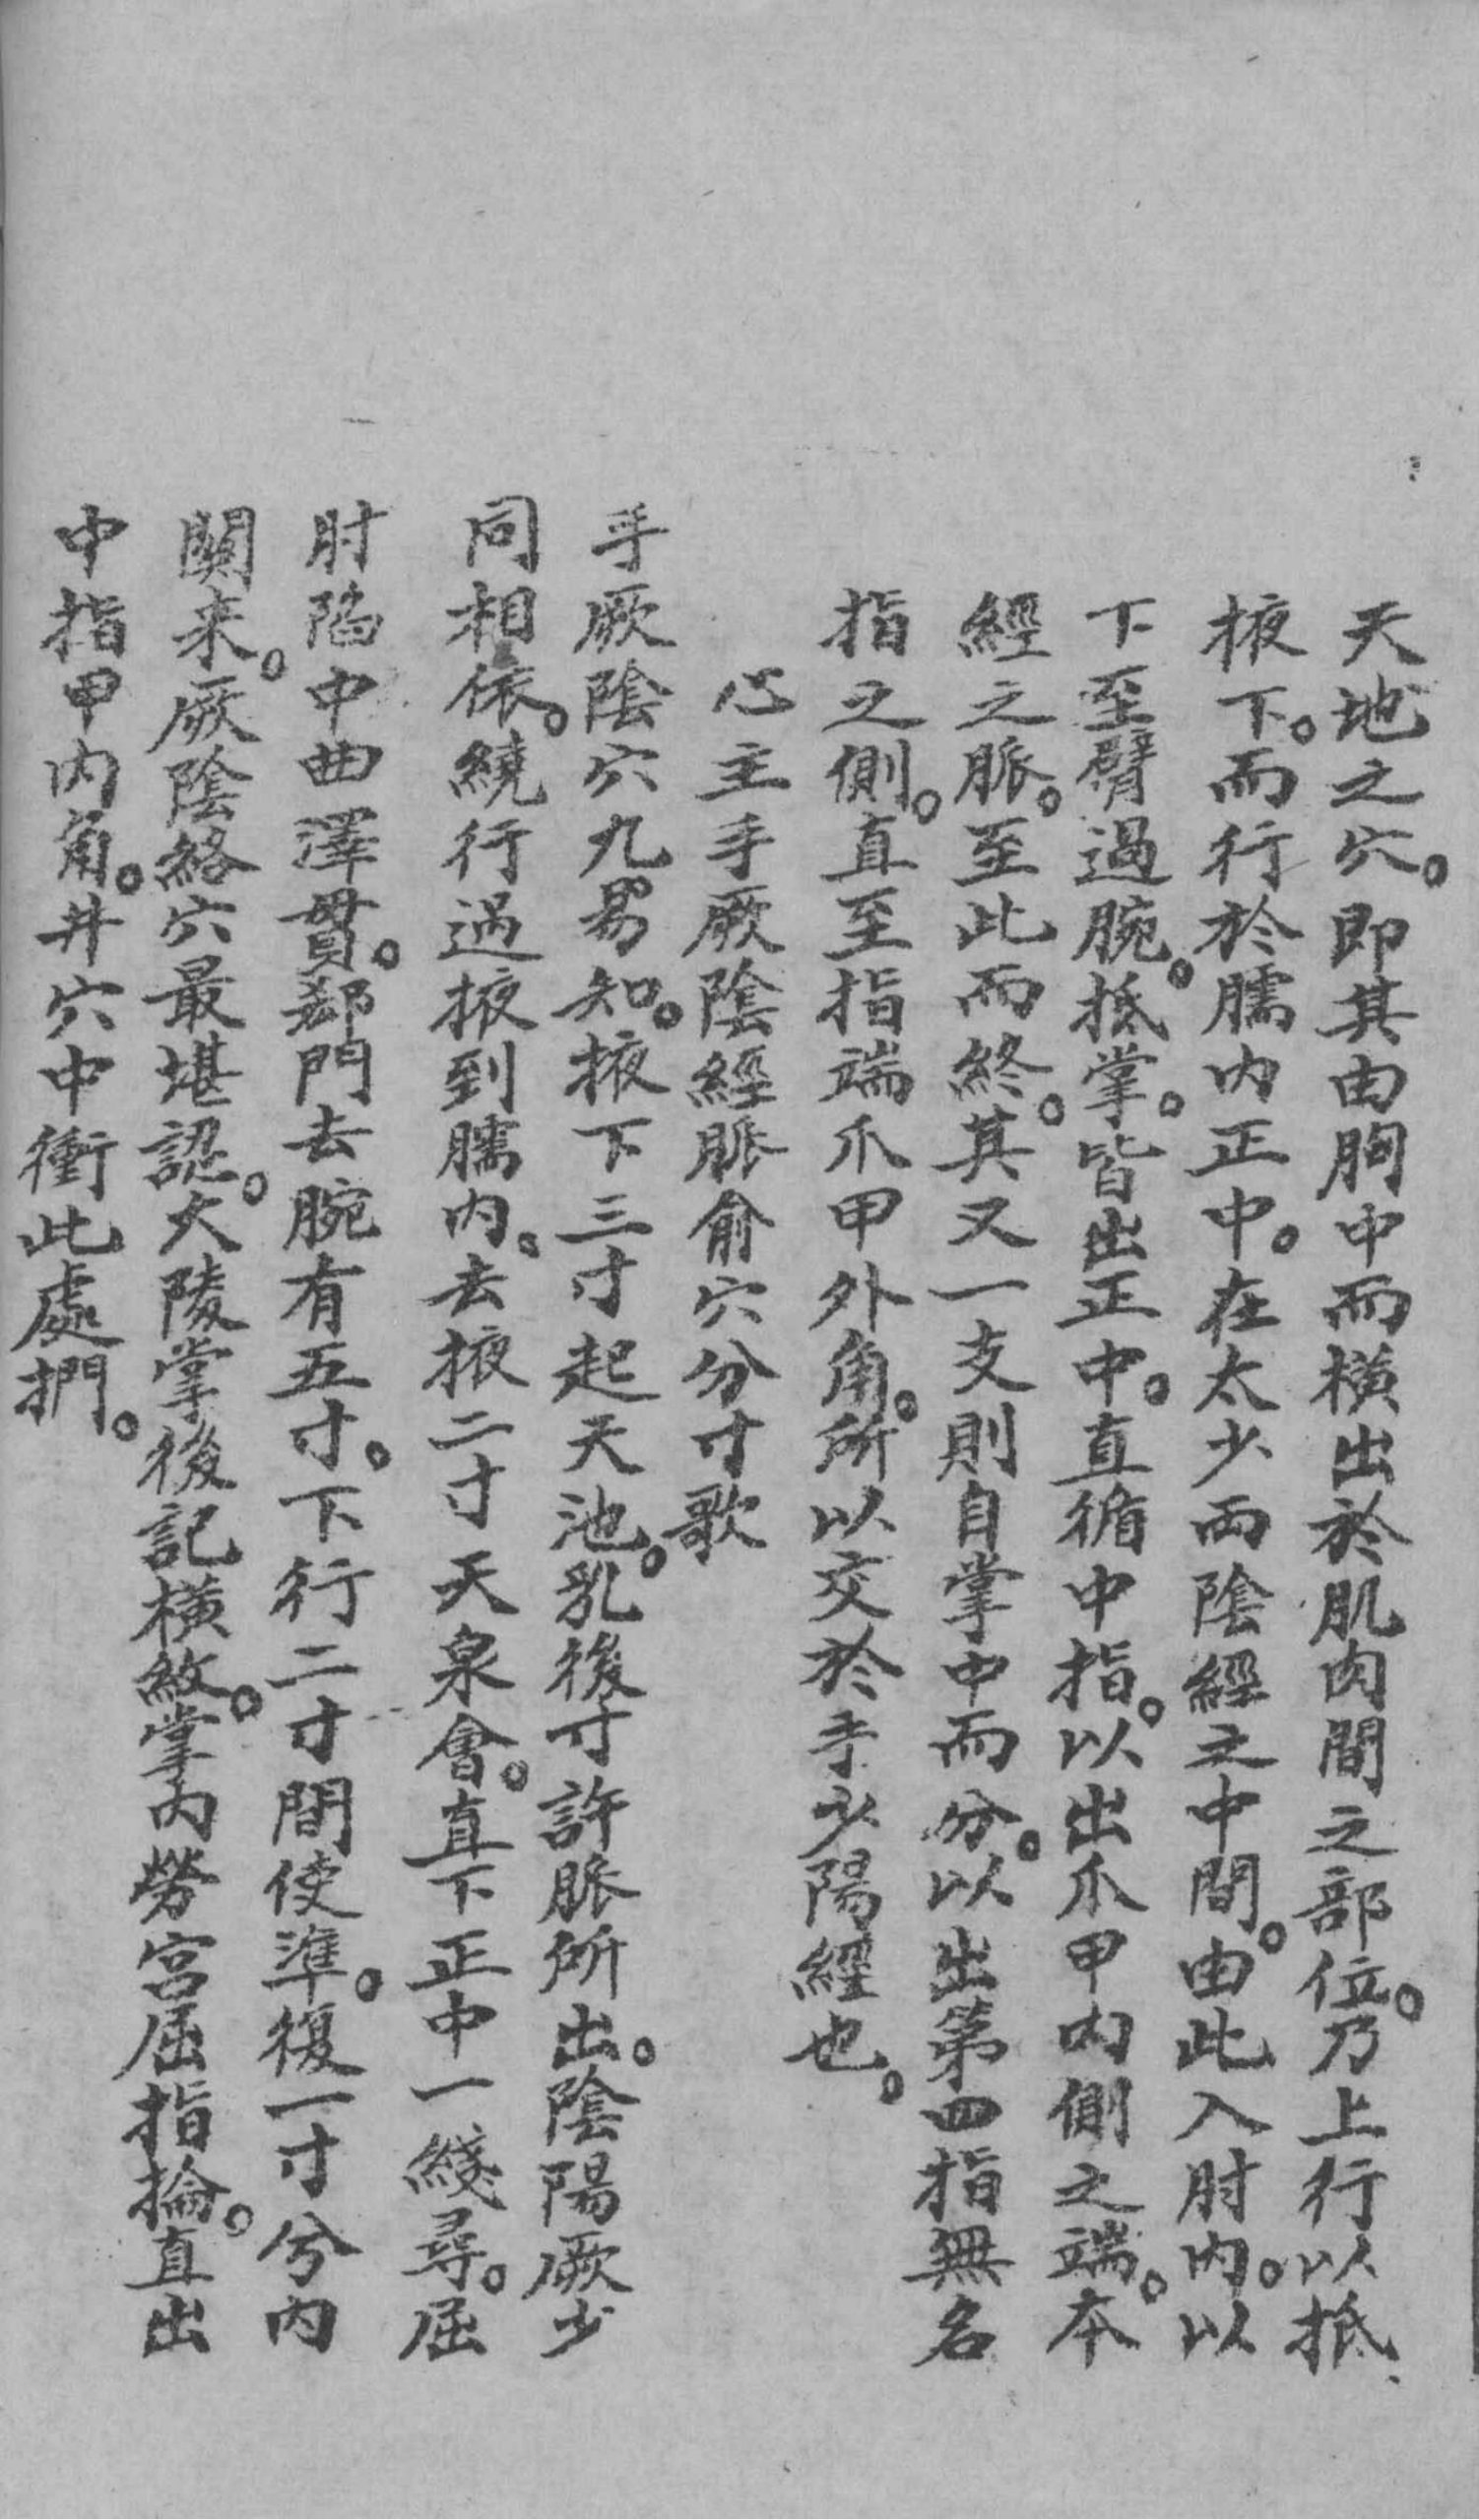 天地之穴。即其由胸中而橫出於肌肉間之部位。乃上行以抵
掖下。而行於臑內正中。在太少兩陰經之中間。由此入肘內。以
下至臂過腕。抵掌。皆出正中。直循中指。以出爪甲內側之端。本
經之脈。至此而終。其又一支則自掌中而分。以出第四指無名
指之側。直至指端爪甲外角。所以交於手少陽經也。
心主手厥陰經脈俞穴分寸歌
手厥陰穴九易知。掖下三寸起天池。乳後寸許脈所出。陰陽厥少
同相依。繞行過掖到臑內。去掖二寸天泉會。直下正中一綫尋。屈
肘陷中曲澤貫。郄門去腕有五寸。下行二寸間使準。復一寸兮內
関来。厥陰絡穴最堪認。大陵掌後記橫紋。掌內勞宮屈指掄。直出
中指甲內角。井穴中衝此處捫。